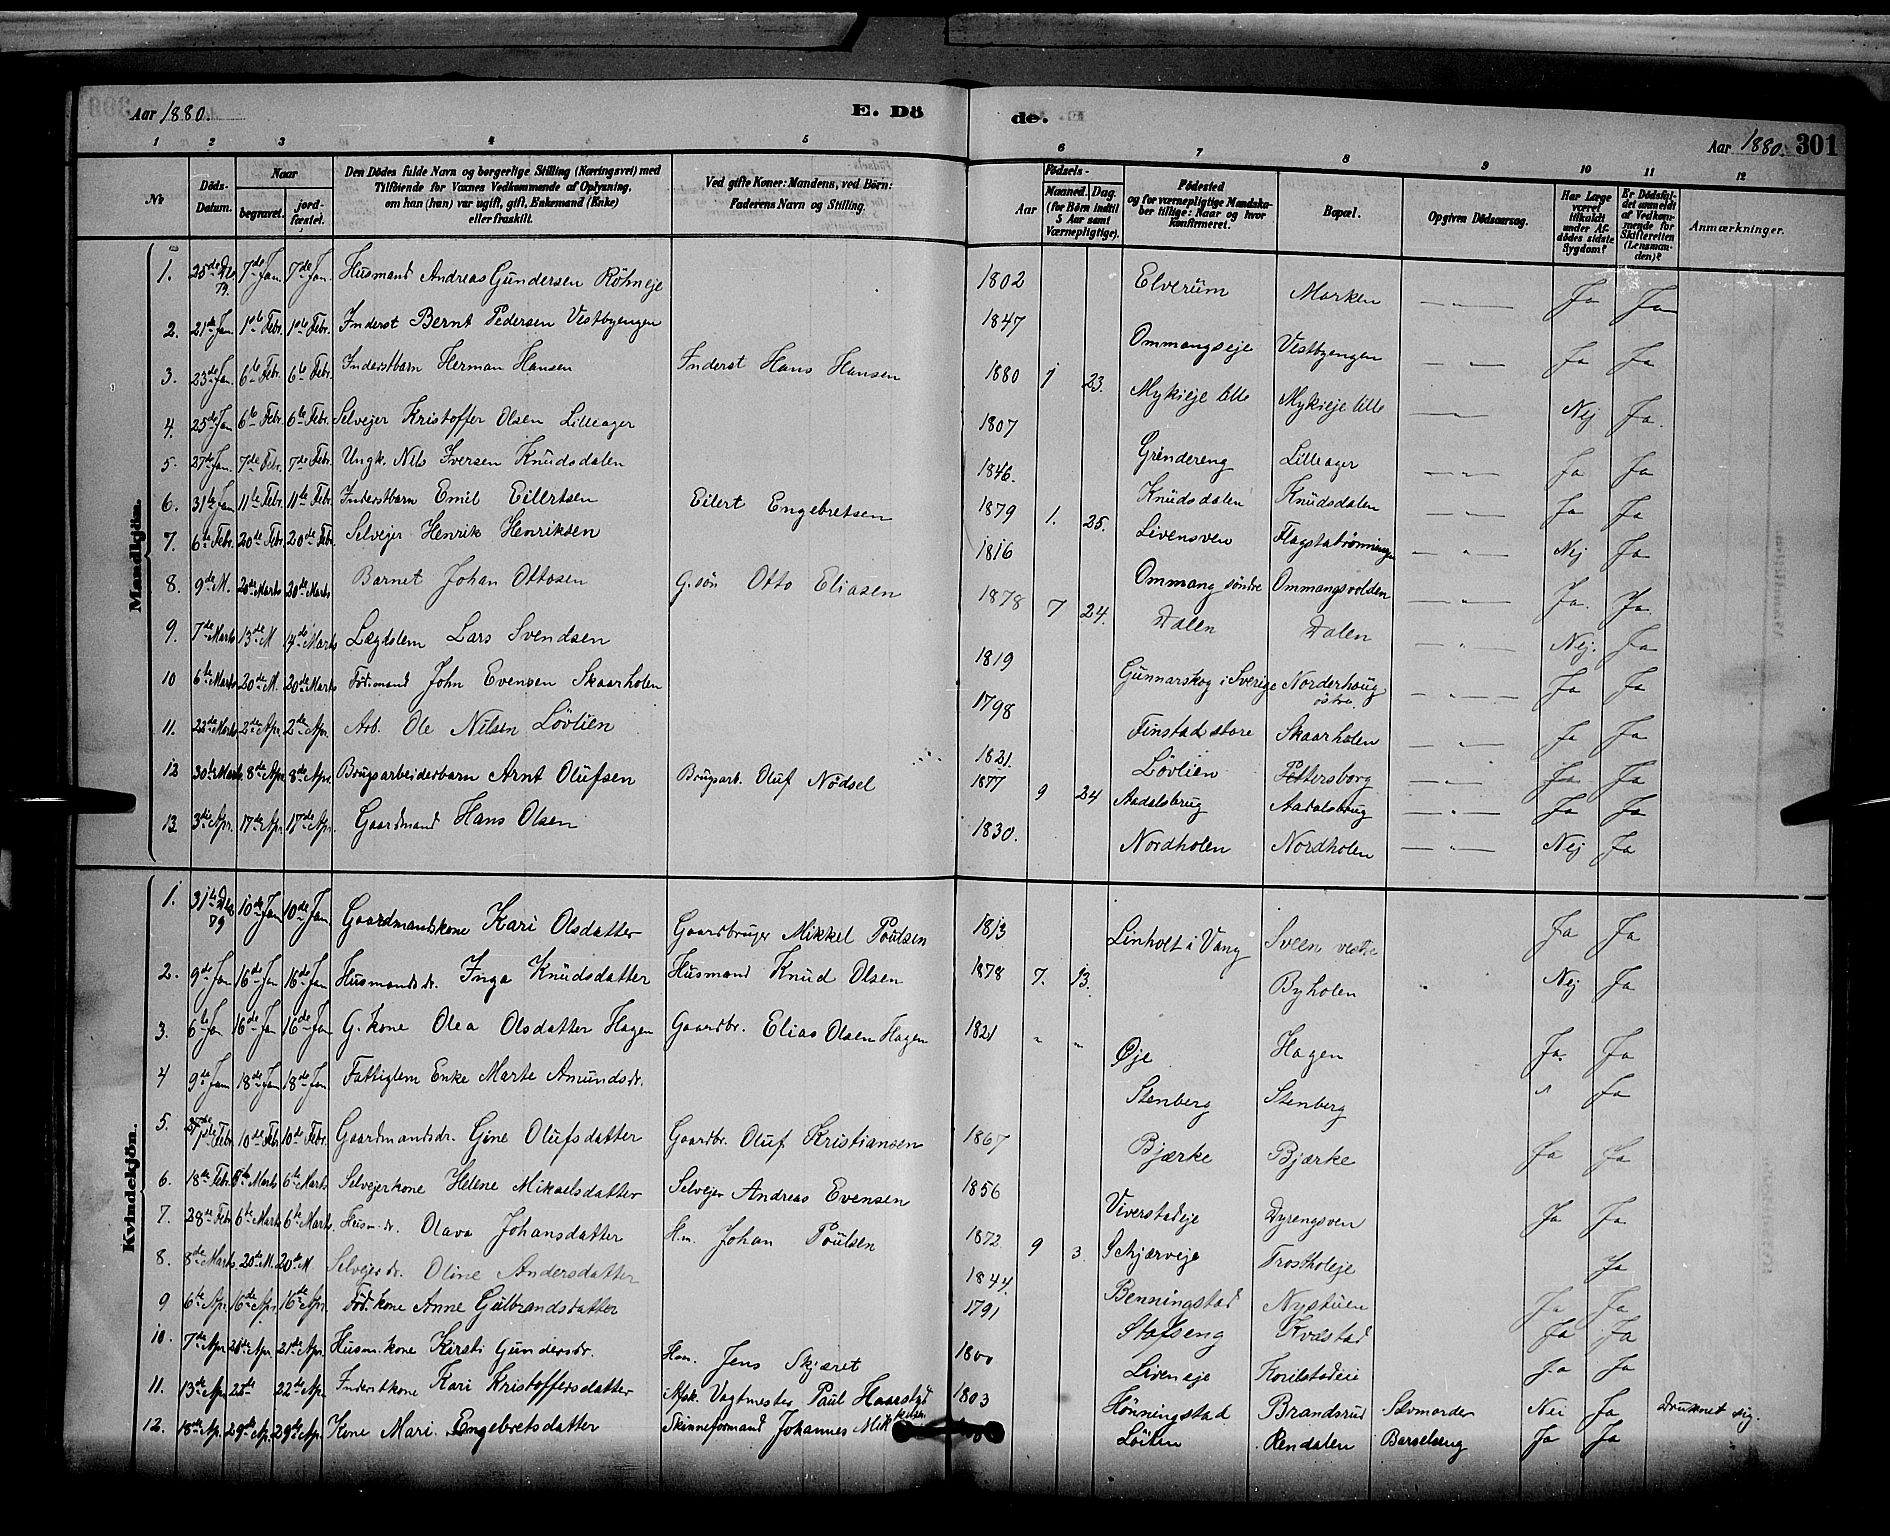 Aar 1880. E. Dö de. Aar 1880. 301
1 2 3 4 5 6 7 8 9 10 11 12
No Döds-Datum. Naar begravet. jordfæstet. Den Dödes fulde Navn og borgerlige Stilling (Næringsvei) med Tilföiende for Voxnes Vedkommende af Oplysning, om han (hun) var ugift, gift, Enkemand (Enke) eller fraskilt. Ved gifte Koner: Mandens, ved Börn: Faderens Navn og Stilling. Födsels- Aar Maaned. Dag. (for Börn indtil 5 Aar samt Værnepligtige). Födested og for værnepligtige Mandskaber tillige: Naar og hvor Konfirmeret. Bopæl. Opgiven Dödsaarsag. Har Læge været tilkaldt under Afdödes sidste Sygdom? Er Dödsfaldet anmeldt af Vedkommende for Skifteretten (Lensmanden)? Anmærkninger.
Mandkjön.
1. 25de Dec 79. 7de Jan 7de Jan. Husmand Andreas Gundersen Röhneje 1802 Elverum Marken — „ — Ja Ja
2. 21de Jan 1ste Febr. 1ste Febr. Inderst Bernt Pedersen Vestbyengen 1847 Ommangseje Vestbyengen — „ — Ja Ja
3. 23de Jan. 6te Febr. 6te Febr. Inderstbarn Herman Hansen Inderst Hans Hansen 1880 1 23. Mykieje lille Mykieje lille — „ — Nej Ja.
4. 25de Jan 6te Febr. 6te Febr. Selvejer Kristoffer Olsen Lilleager 1807 Grindereng Lilleager — „ — Ja Ja
5. 27de Jan. 7de Febr. 7de Febr. Ungk. Nils Iversen Knudsdalen 1846. Knudsdalen Knudsdalen — „ — Ja Ja
6. 31te Jan 11te Febr. 11te Febr. Inderstbarn Emil Eilertsen Eilert Engebretsen 1879 1. 25. Livensven Flagstadrönningen — „ — Nej Ja
7. 6te Febr. 20de Febr. 20de Febr. Selvejer Henrik Henriksen 1816 Ommang söndre Ommangsvolden — „ — Ja. Ja.
8. 9de M. 20de Marts 20de Marts Barnet Johan Ottosen G.sön Otto Eliasen 1878 7 24. Dalen Dalen — „ — Nej. Ja
9. 7de Marts 13de M. 14de Marts Lægdslem Lars Svendsen 1819 Gunnarskog i Sverige Norderhoug östre. — „ — Ja Ja
10 6te Marts 20de M. 20de Marts Föd.mand John Evensen Skaarholen 1798 Finstad store Skaarholen — „ — Ja Ja
11. 22de Marts 2de Apr. 2de Apr. Arb. Ole Nilsen Lövlien 1821. Lövlien Pettersborg — „ — Ja Ja
12 30te Marts. 8de Apr. 8de Apr. Brugsarbeiderbarn Arnt Olufsen Brugsarb. Oluf Nödsel 1877 9 24 Aadalsbrug Aadalsbrug — „ — Ja Ja
13 3de Apr. 17de Apr. 17de Apr. Gaardmand Hans Olsen 1830. Nordholen Nordholen — „ — Nej Ja
Kvindekjön.
1. 31te Dec 79 10de Jan 10de Jan. Gaardmandskone Kari Olsdatter Gaardbruger Mikkel Poulsen 1813 Linholt i Vang Sveen vestre Ja Ja
2. 9de Jan 16de Jan 16de Jan Husmandsdr. Inga Knudsdatter Husmand Knud Olsen 1878 7. 13. Byholen Nej Ja
3. 6te Jan 16de Jan 16de Jan G. kone Olea Olsdatter Hagen Gaardbr. Elias Olsen Hagen 1821 „ „ Øje Hagen Ja. Ja
4 9de Jan 18de Jan 18de Jan Fattiglem Enke Marte Amundsdr. Stenberg Stenberg „ Ja
5. Febr. 10de Febr 10de Febr. Gaardmandsdr. Gine Olufsdatter Gaardbr. Oluf Kristiansen 1867 Bjærke Bjærke Ja Ja
6. 18de Febr. 6te Marts 6te Marts Selvejerkone Helene Mikaelsdatter Selvejer Andreas Evensen 1856 Viverstadeje Dyrengsven Ja Ja
7. 28de Febr 6te Marts 6te Marts. Husm.dr. Olava Johansdatter Hm. Johan Poulsen 1872. 9 3. Skjærveje Trostholeje Ja
8. 8de Marts. 20de M. 20de M. Selvejerdr. Oline Andersdatter 1844. Benningstad Nystuen Ja Ja
9 6te Apr. 16de Apr. 16de Apr. Föd.kone Anne Gulbrandsdatter 1791 Stafseng Kvæstad Ja Ja
10. 7de Apr 21de Apr. 21de Apr. Husm.kone Kirsti Gundersdr. Hm. Jens Skjæret 1800 Liveneje Ja Ja
11. 13de Apr 22de 22de Apr. Inderstkone Kari Kristoffersdatter Afsk. Vagtmester Paul Haarstad 1803 Hönningstad Brandsrud Selvmorder Nei Ja druknet sig.
12. 18de Ap. 29de Ap. 29de Ap. Kone Mari Engebretsdatter Skinneformand Johannes Löiten Rendalen Barselseng Ja Ja